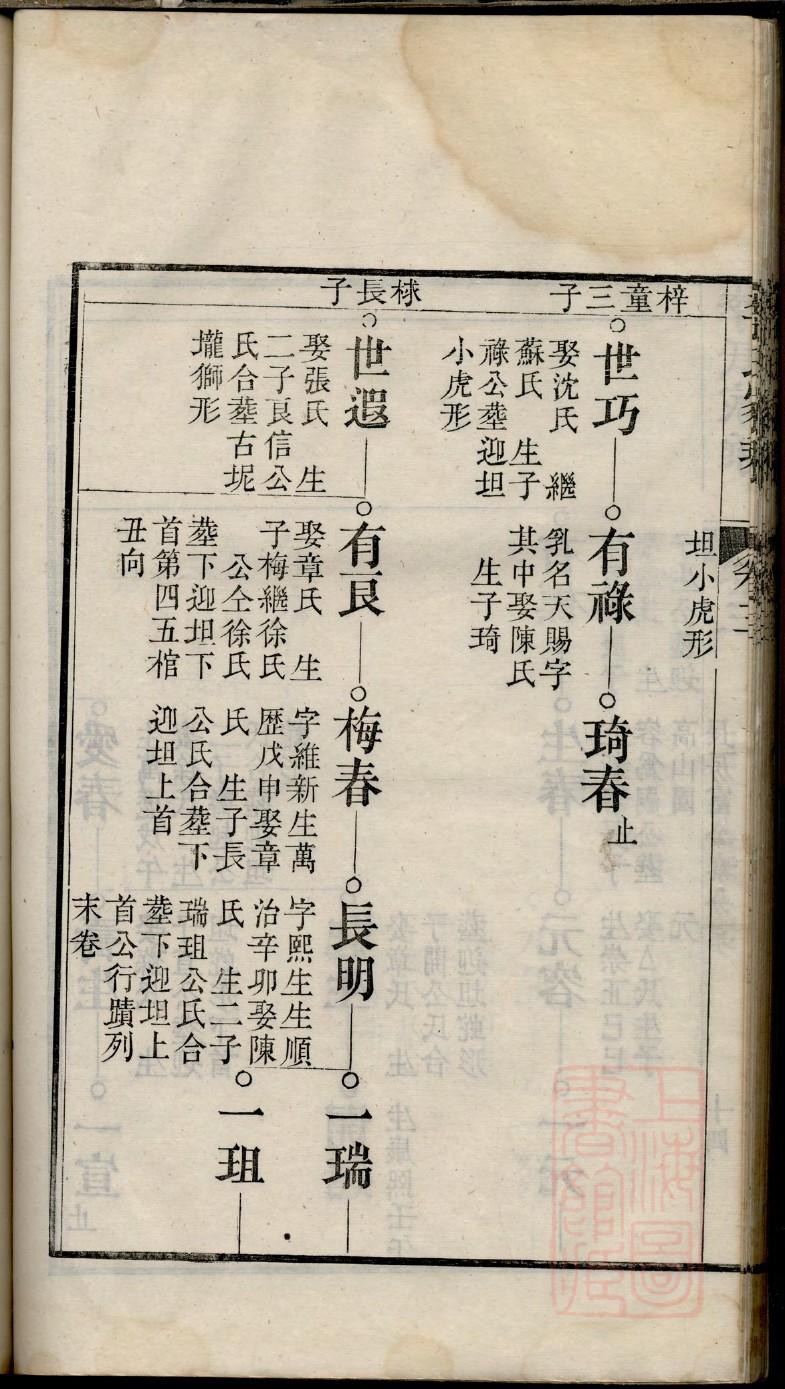 坦小虎形
梓童三子
世巧
娶沈氏　繼
蘇氏　生子
祿公塟迎坦
小虎形
有祿
乳名天賜字
其中娶陳氏
生子琦
琦春止
梂長子
世遐
娶張氏　生
二子良信公
氏合塟古坭
壠獅形
有良
娶章氏　生
子梅繼徐氏
公仝徐氏
塟下迎坦下
首第四五棺
丑向
梅春
字維新生萬
歷戊申娶章
氏　生子長
公氏合塟下
迎坦上首
長明
字熙生生順
治辛卯娶陳
氏　生二子
瑞珇公氏合
塟下迎坦上
首公行蹟列
末卷
一瑞
一珇
上海圖
書館藏